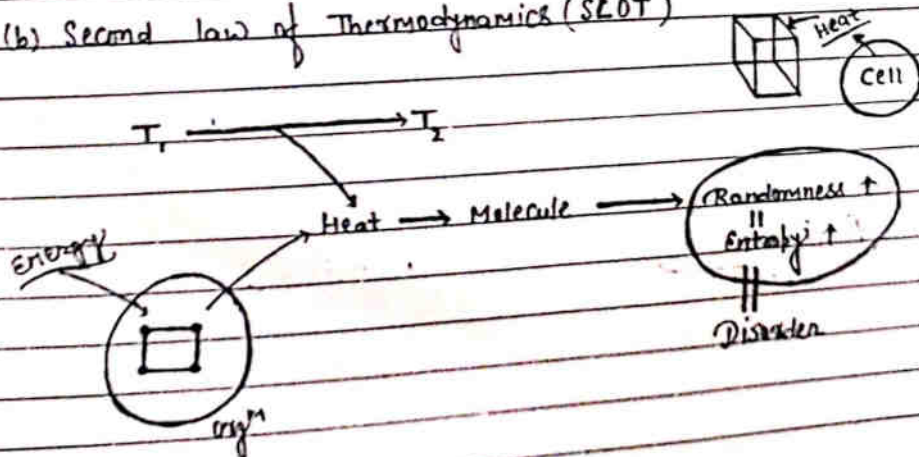 (b) Second law of Thermodynamics (SLOT)
Heat
Cell
T₁ → T₂
Heat → Molecule → Randomness ↑
||
Entropy ↑
||
Disorder
Energy
orgᴹ